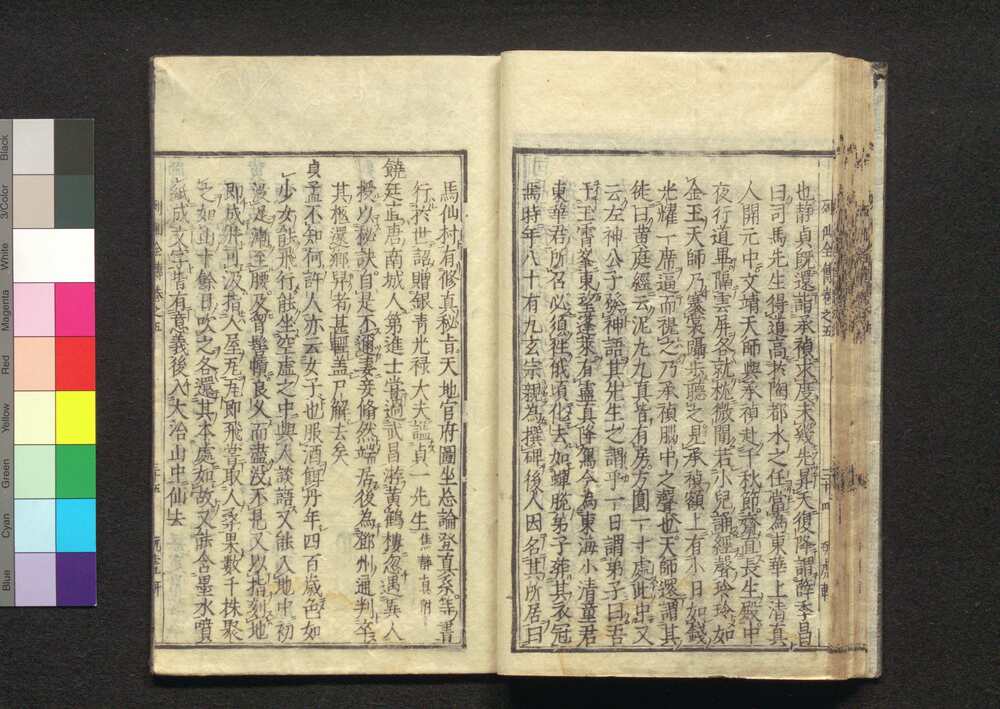 也靜貞既還詣承禎求度未幾先昇天復降謂薛季昌
曰司馬先生得道高於陶都水之任當為東華上清真
人開元中文靖天師與承禎赴千秋節齋直長生殿中
夜行道畢隔雲屏各就枕微聞若小兒誦經聲玲玲如
金玉天師乃褰裳躡步聽之見承禎額上有小日如錢
光耀一席逼而視之乃承禎腦中之聲也天師還謂其
徒曰黃庭經云泥丸九真皆有房方圓一寸處此中又
云左神公子發神語其先生之謂乎一日謂弟子曰吾
於玉霄峯東望蓬萊有靈真降駕今為東海小清童君
東華君所召必須往俄頃化去如蟬蛻弟子葬其衣冠
焉時年八十有九玄宗親為撰碑後人因名其所居曰
馬仙村有修真秘旨天地官府圖坐忘論登真系等書
行於世詔贈銀青光祿大夫諡貞一先生焦靜真附
饒廷直唐南城人第進士嘗過武昌游黃鶴樓忽遇異人
授以秘訣自是不邇妻妾翛然端居後為鄧州通判卒
其柩還鄉舁者甚輕蓋尸解去矣
貞孟不知何許人亦云女子也服酒餌丹年四百歲色如
少女能飛行能坐空虛之中與人談語又能入地中初
沒足漸至腰及胷輕幘良久而盡沒不見又以指刻地
即成井可汲指人屋瓦瓦即飛嘗取人桑果數千株聚
之如山十餘日吹之各還其本處如故又能含墨水噴
紙成文字皆有意義後入大冶山中仙去